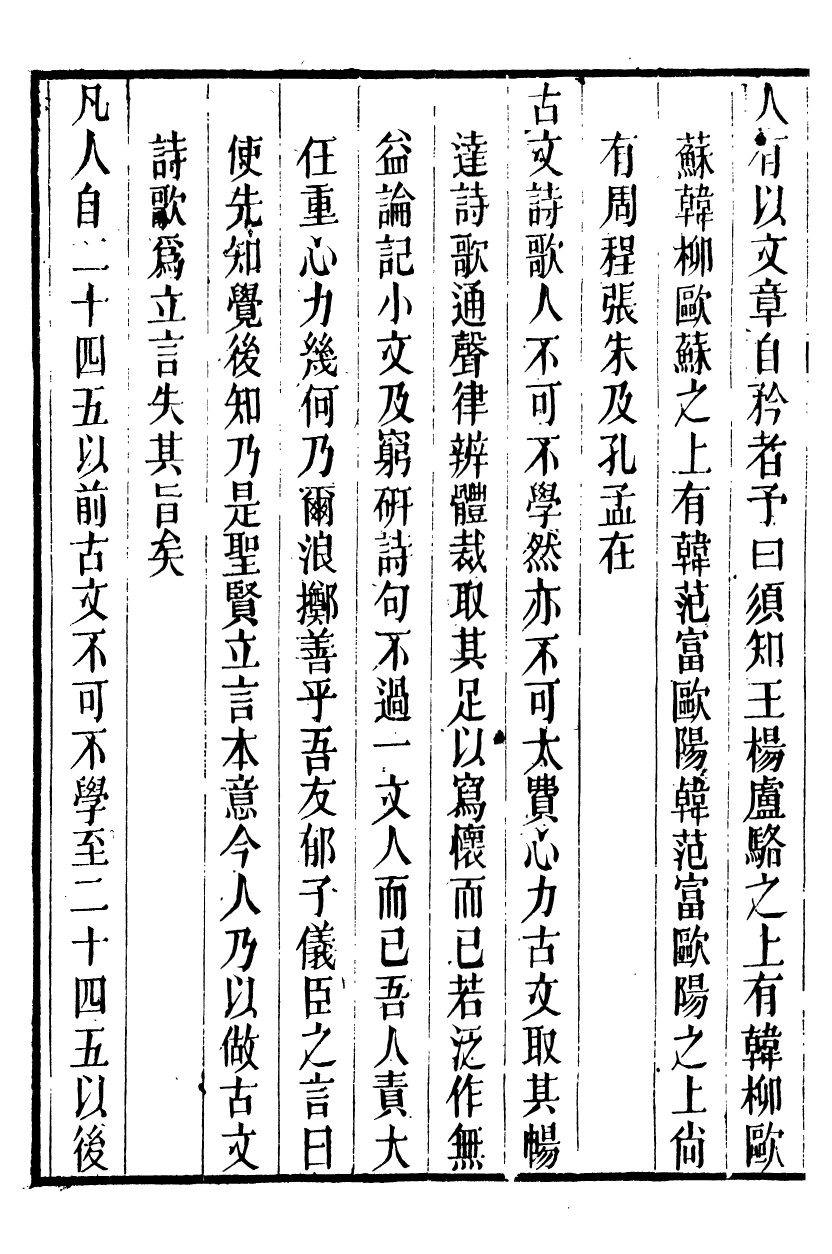 人有以文章自矜者予曰須知王楊盧駱之上有韓柳歐
蘇韓柳歐蘇之上有韓范富歐陽韓范富歐陽之上尙
有周程張朱及孔孟在
古文詩歌人不可不學然亦不可太費心力古文取其暢
達詩歌通聲律辨體裁取其足以寫懷而已若泛作無
益論記小文及窮硏詩句不過一文人而已吾人責大
任重心力幾何乃爾浪擲善乎吾友郁子儀臣之言曰
使先知覺後知乃是聖賢立言本意今人乃以做古文
詩歌爲立言失其旨矣
凡人自二十四五以前古文不可不學至二十四五以後